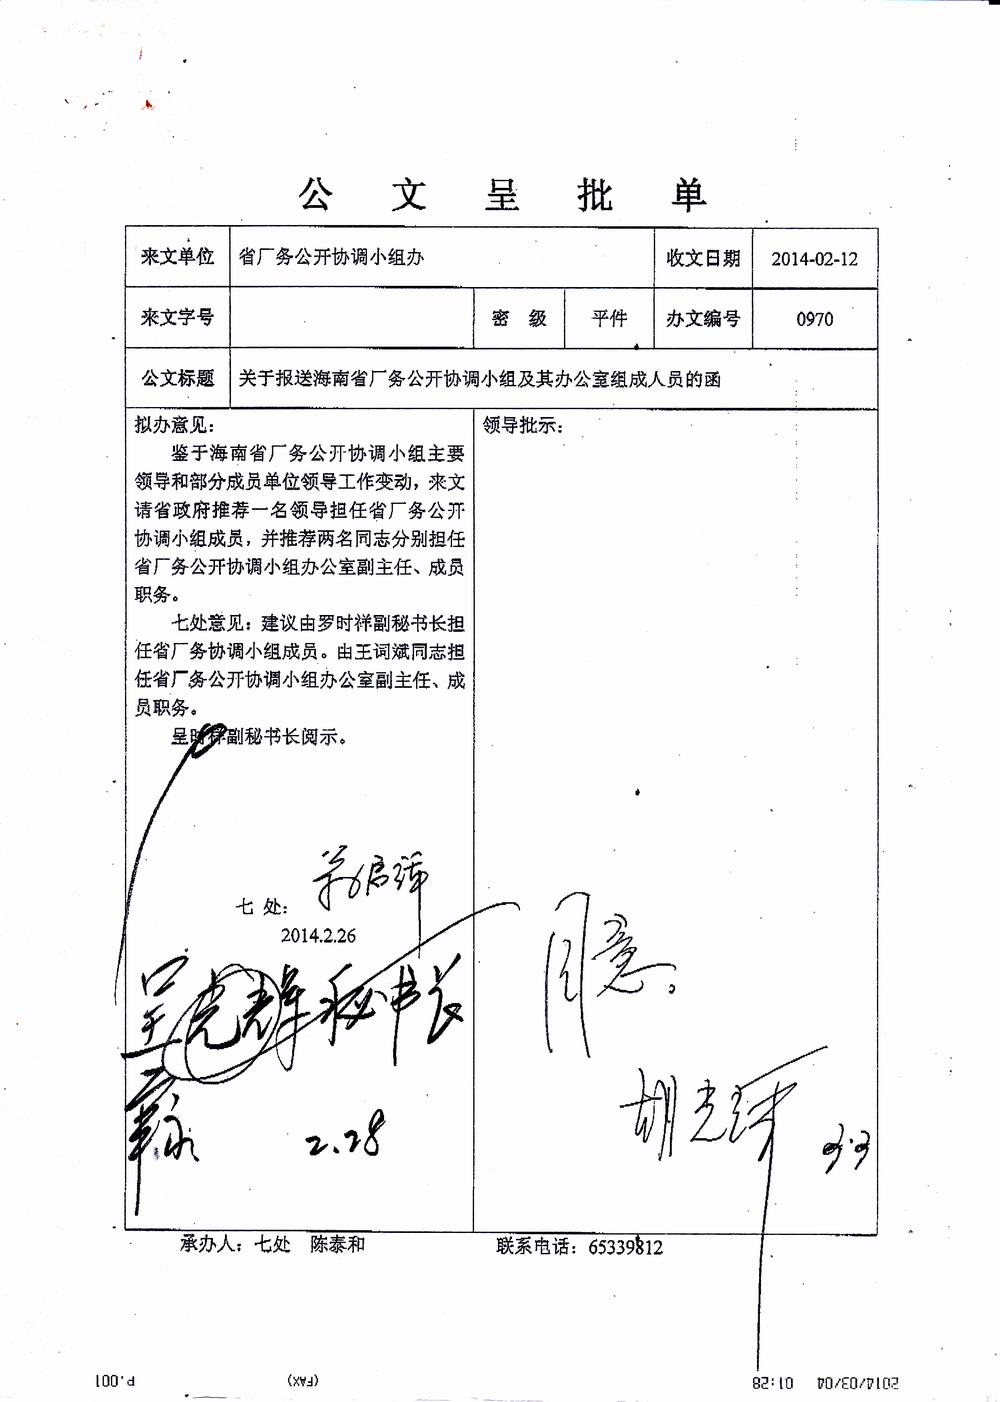 公文呈批单
来文单位 省厂务公开协调小组办 收文日期 2014-02-12
来文字号 密级 平件 办文编号 0970
公文标题 关于报送海南省厂务公开协调小组及其办公室组成人员的函
拟办意见：
鉴于海南省厂务公开协调小组主要
领导和部分成员单位领导工作变动，来文
请省政府推荐一名领导担任省厂务公开
协调小组成员，并推荐两名同志分别担任
省厂务公开协调小组办公室副主任、成员
职务。
七处意见：建议由罗时祥副秘书长担
任省厂务协调小组成员。由王词斌同志担
任省厂务公开协调小组办公室副主任、成
员职务。
呈时祥副秘书长阅示。
七处：
2014.2.26
呈光辉秘书长
2.28
领导批示：
同意。
胡光辉
3.3
承办人：七处 陈泰和 联系电话：65339812
2014/03/04 01:28 (FAX) P.001